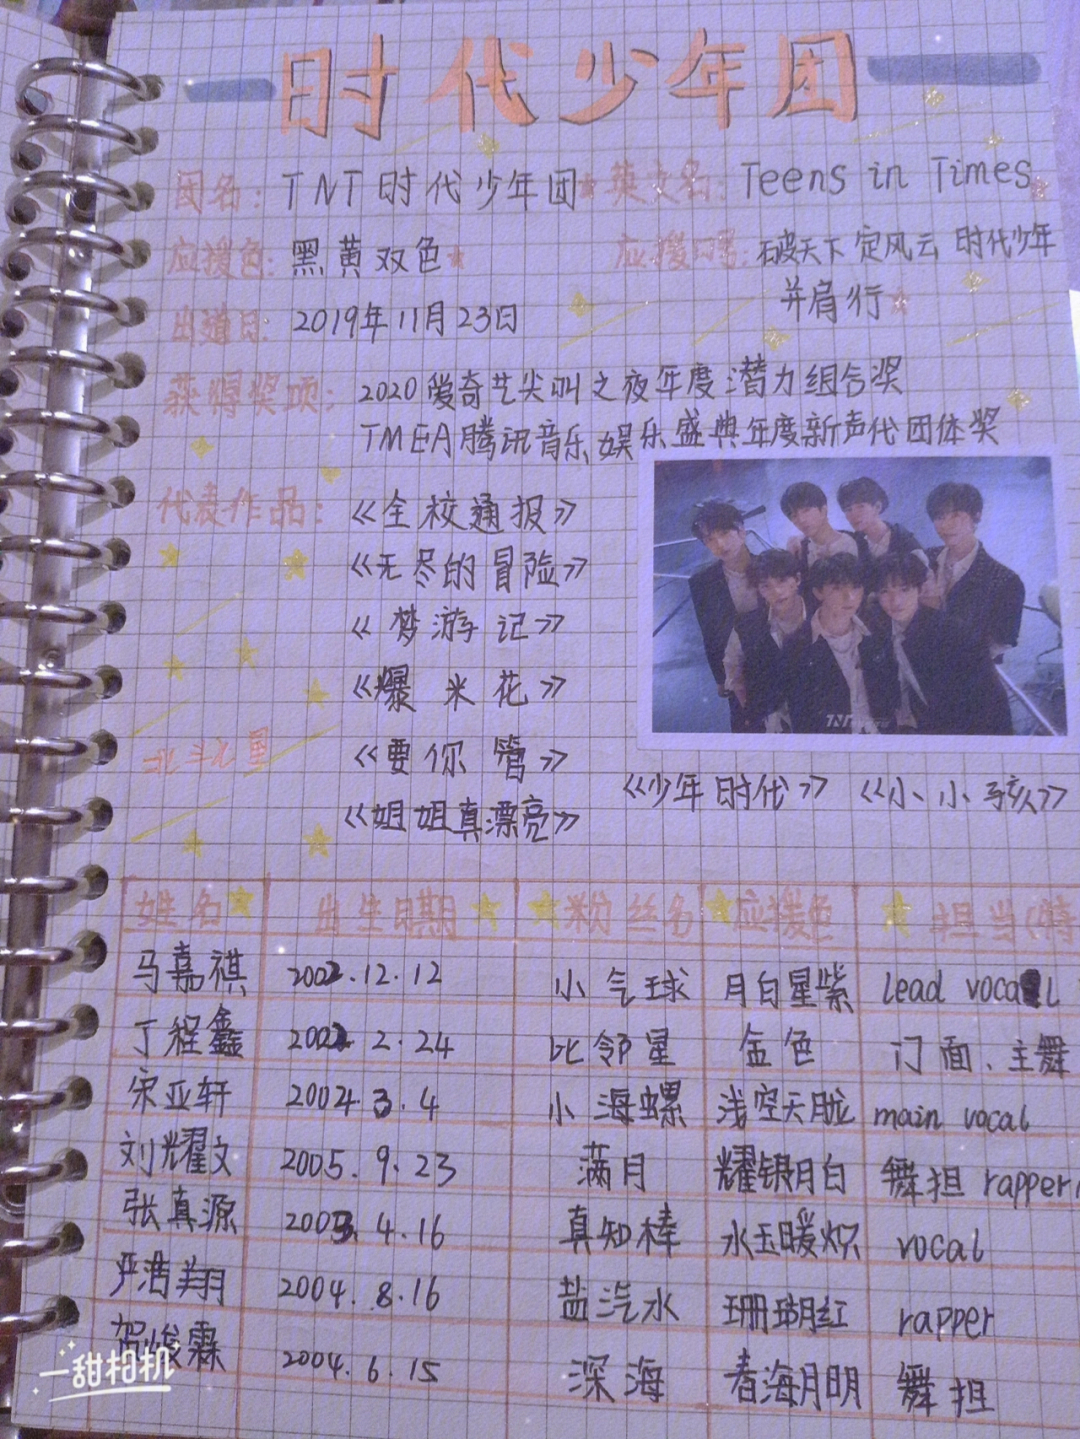 时代少年团
团名：TNT时代少年团 英文名：Teens in Times
应援色：黑黄双色 应援口号：破天下 定风云 时代少年
并肩行
出道日：2019年11月23日
获得奖项：2020爱奇艺尖叫之夜年度潜力组合奖
TMEA腾讯音乐娱乐盛典年度新声代团体奖
代表作品：《全校通报》
《无尽的冒险》
《梦游记》
《爆米花》
北斗七星
《要你管》
《少年时代》《小小孩》
《姐姐真漂亮》
姓名 出生日期 粉丝名 应援色 担当(特
马嘉祺 2002.12.12 小气球 月白星紫 lead vocal
丁程鑫 2002.2.24 比邻星 金色 门面、主舞
宋亚轩 2004.3.4 小海螺 浅空天胧 main vocal
刘耀文 2005.9.23 满月 耀银月白 舞担 rapper
张真源 2003.4.16 真知棒 水玉暖炽 vocal
严浩翔 2004.8.16 盐汽水 珊瑚红 rapper
贺峻霖 2004.6.15 深海 春海月明 舞担
一甜相机
TNT